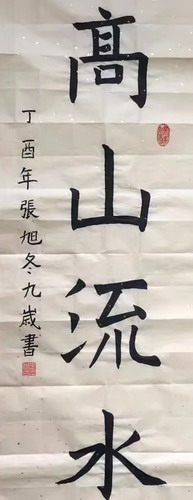 高山流水
丁酉年張旭冬九歲書